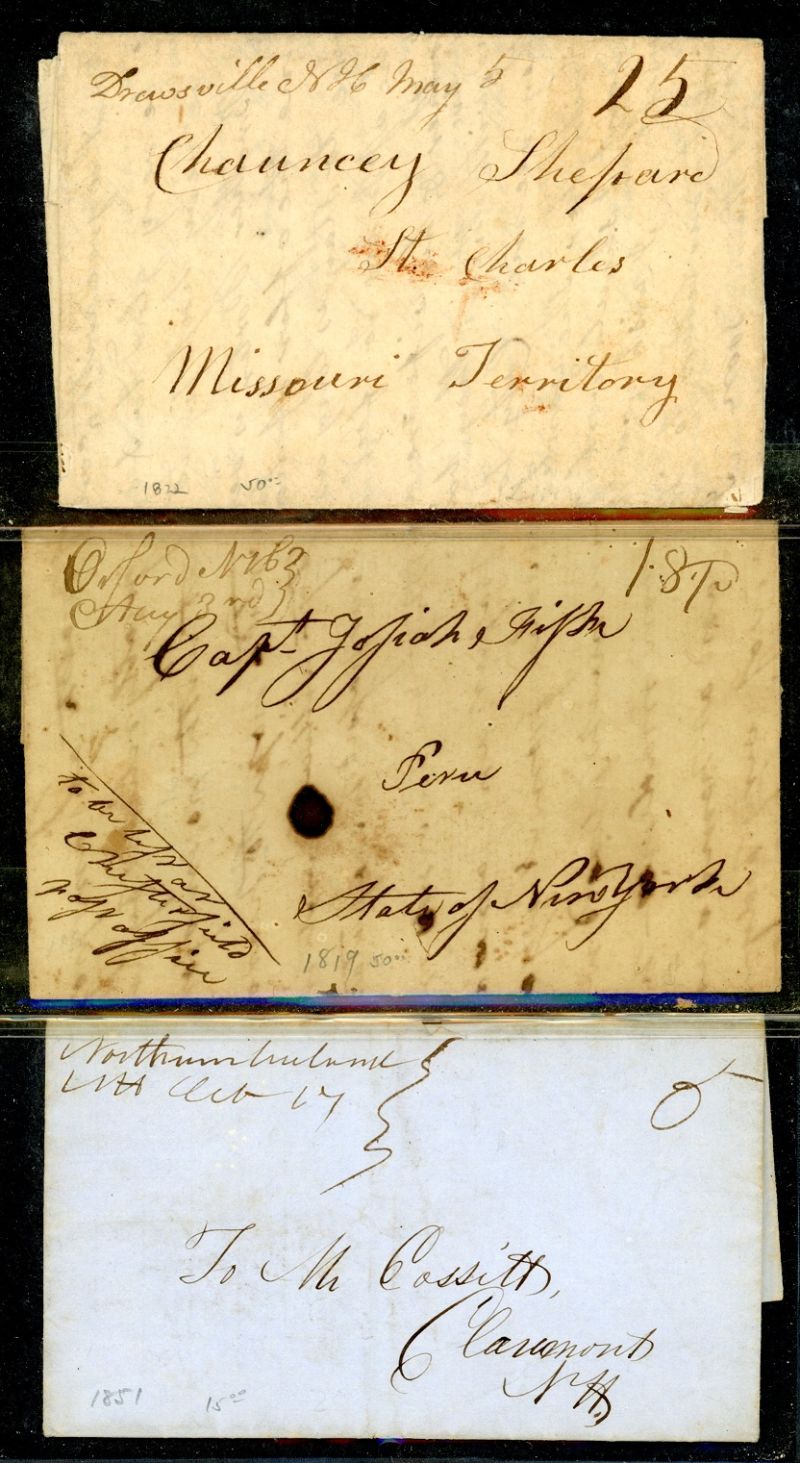 Drewsville NH May 5
25
Chauncey Shepard
St. Charles
Missouri Territory
1822 50⁰⁰
Orford NH
Aug 3rd
18½
Capt. Josiah Fish
Peru
State of New York
to be left at
Chesterfield
post office
1819 50⁰⁰
Northumberland
NH Oct 17
5
To Mr Cossitt,
Claremont
N.H.
1851 15⁰⁰